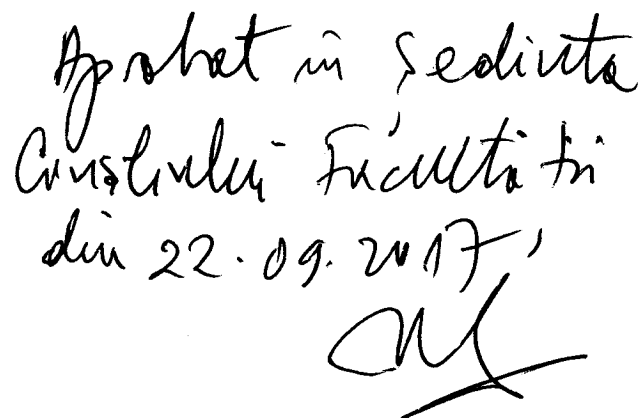 Aprobat în ședința
Consiliului Facultății
din 22.09.2017,